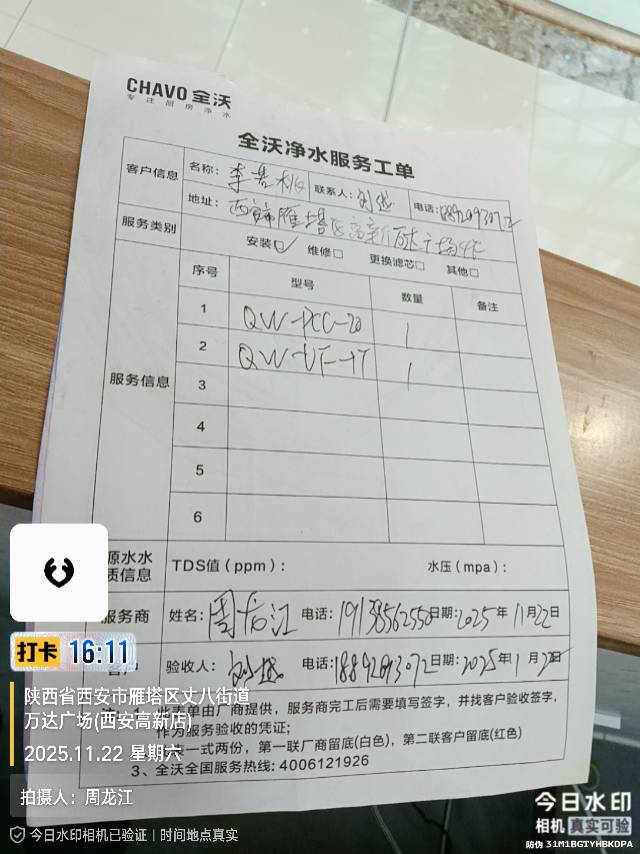 CHAVO 全沃
专注厨房净水
全沃净水服务工单
客户信息 名称: 李 桃 联系人: 刘 电话:
地址: 西安雁塔区高新万达广场4F
服务类别 安装☑ 维修□ 更换滤芯□ 其他□
服务信息
序号 型号 数量 备注
1 QW-PCC-20 1
2 QW-UF-1T 1
3
4
5
6
源水水质信息 TDS值(ppm): 水压(mpa):
服务商 姓名: 周龙江 电话: 日期: 2025年11月22日
客户 验收人: 刘 电话: 18892093072 日期: 2025年1月22日
1、此表单由厂商提供,服务商完工后需要填写签字,并找客户验收签字,
作为服务验收的凭证;
一式两份,第一联厂商留底(白色),第二联客户留底(红色)
3、全沃全国服务热线: 4006121926
打卡 16:11
陕西省西安市雁塔区丈八街道
万达广场(西安高新店)
2025.11.22 星期六
拍摄人: 周龙江
今日水印相机已验证 | 时间地点真实
今日水印
相机 真实可验
防伪 31M1BGTYHBKDPA